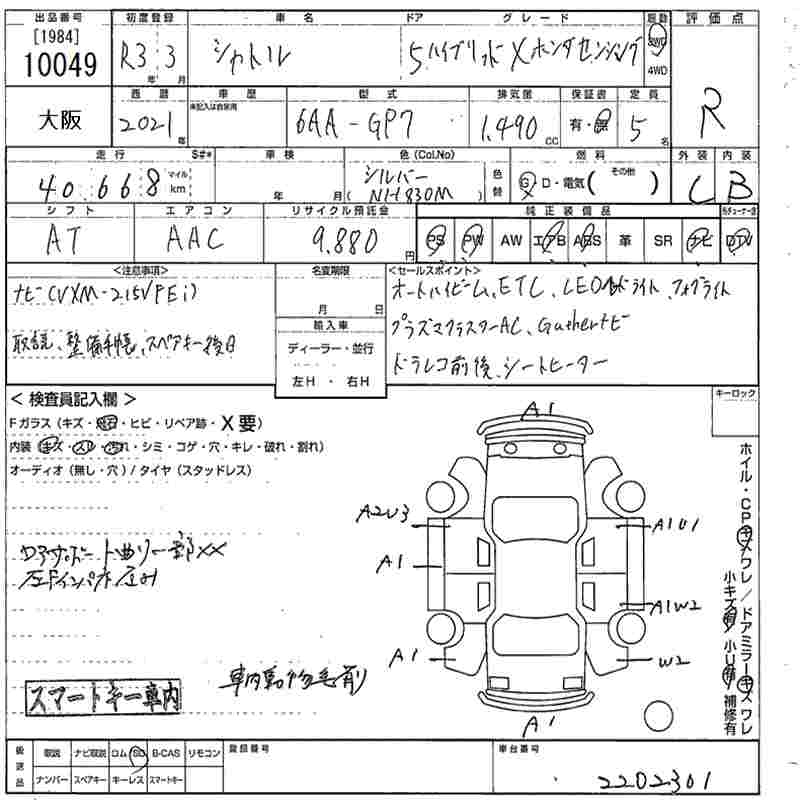 出品番号 初度登録 車名 ドア グレード 駆動 評価点
[1984]
10049 R3年 3月 シャトル 5 ハイブリッド X ホンダセンシング 2WD 4WD
R
西暦 車歴 型式 排気量 保証書 定員
大阪 2021年 未記入は自家用 6AA-GP7 1,490cc 有・無 5名
走行 S#* 車検 色(Col.No) 燃料 外装 内装
40,668 マイル km 年 月 シルバー (NH830M) 色替 G D・電気( その他 ) C B
シフト エアコン リサイクル預託金 純正装備品 地デジチューナー
AT AAC 9,880円 PS PW AW エアB ABS 革 SR ナビ DTV
<注意事項> 名変期限 <セールスポイント>
ナビ(VXM-215VFEi) 月 日 オートハイビーム、ETC、LEDヘッドライト、フォグライト
輸入車 プラズマクラスターAC、Gathersナビ
取説、整備手帳、スペアキー後日 ディーラー・並行 ドラレコ前後、シートヒーター
左H・右H
< 検査員記入欄 > キーロック
Fガラス(キズ・飛石・ヒビ・リペア跡・X要)
内装(キズ・スレ・汚れ・シミ・コゲ・穴・キレ・破れ・割れ)
オーディオ(無し・穴)/タイヤ(スタッドレス)
A1
A2U3 A1U1
A1
A1W2
A1 W2
A1
左Fインパネ
車内動物毛有
スマートキー車内
ホイル・CPキズワレ/ドアミラーキズワレ
小キズ有/小U有/補修有
後送品 取説 ナビ取説 ロム SD B-CAS リモコン 登録番号 車台番号
ナンバー スペアキー キーレス スマートキー 2202301